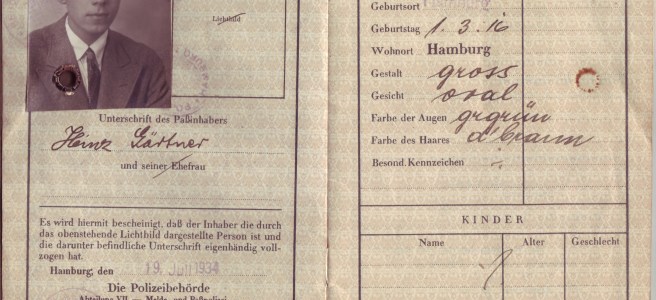 Lichtbild
Unterschrift des Paßinhabers
Heinz Gärtner
und seiner Ehefrau
Es wird hiermit bescheinigt, daß der Inhaber die durch
das obenstehende Lichtbild dargestellte Person ist und
die darunter befindliche Unterschrift eigenhändig voll-
zogen hat.
Hamburg, den 19. Juli 1934
Die Polizeibehörde
Abteilung VII. — Melde- und Paßpolizei
Geburtsort Hamburg
Geburtstag 1. 3. 16
Wohnort Hamburg
Gestalt gross
Gesicht oval
Farbe der Augen grgrün
Farbe des Haares d'braun
Besond. Kennzeichen –
KINDER
Name Alter Geschlecht